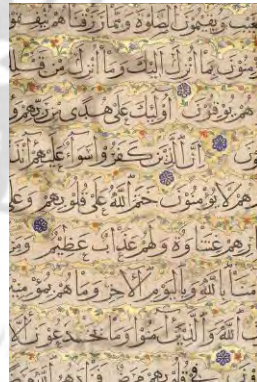 غيب ويقيمون الصلوة ومما رزقناهم ينفقو
منون بما انزل اليك وما انزل من قبلك
هم يوقنون اولئك على هدى من ربهم و
ون ان الذين كفروا سواء عليهم ءانذ
رهم لا يؤمنون ختم الله على قلوبهم وعلى
ارهم غشاوة ولهم عذاب عظيم ومن
منا بالله وباليوم الآخر وما هم بمؤمنين
الله والذين آمنوا وما يخدعون الا
فى قلوبهم مرض فزادهم الله